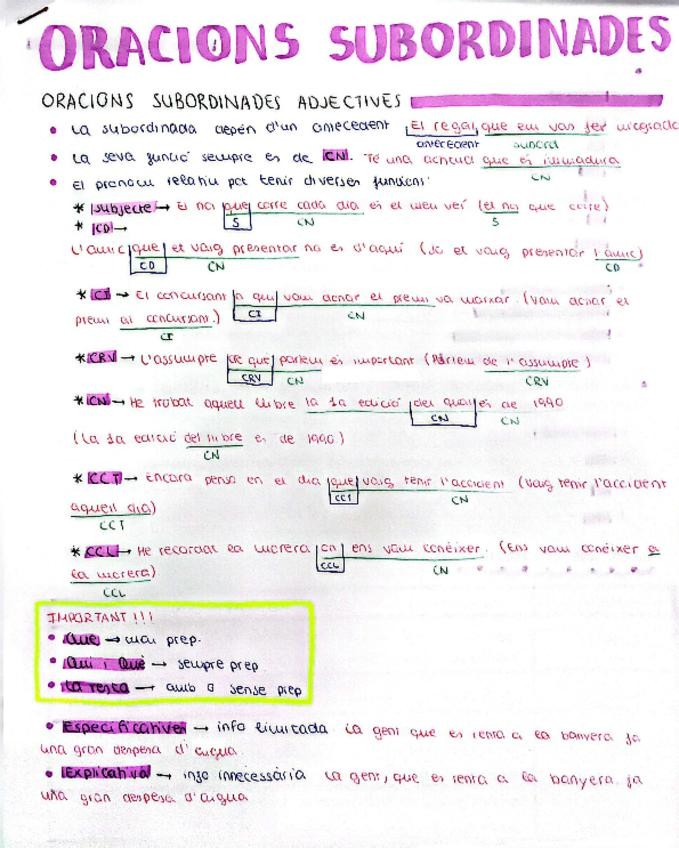 ORACIONS SUBORDINADES
ORACIONS SUBORDINADES ADJECTIVES
• La subordinada depèn d'un antecedent El regal que em van fer m'agrada
antecedent subord
• La seva funció sempre és de CN. Té una actitud que és immadura
CN
• El pronom relatiu pot tenir diverses funcions:
* Subjecte → El noi que corre cada dia és el meu veí (el noi que corre)
S CN S
* CD →
L'amic que et vaig presentar no és d'aquí (Jo et vaig presentar l'amic)
CD CN CD
* CI → El concursant a qui vam donar el premi va marxar. (Vam donar el
premi al concursant.)
CI CN
CI
* CRV → L'assumpte de què parlem és important (Parlem de l'assumpte)
CRV CN CRV
* CN → He trobat aquell llibre la 1a edició del qual és de 1990
CN CN
(La 1a edició del llibre és de 1990)
CN
* CCT → Encara penso en el dia que vaig tenir l'accident (Vaig tenir l'accident
CCT CN
aquell dia)
CCT
* CCL → He recordat la llibreria on ens vam conèixer. (Ens vam conèixer a
CCL CN
CCL
IMPORTANT !!!
• Que → mai prep.
• Qui i Què → sempre prep
• La resta → amb o sense prep
• Especificatives → info limitada La gent que es renta a la banyera fa
una gran despesa d'aigua
• Explicativa → info innecessària La gent, que es renta a la banyera, fa
una gran despesa d'aigua